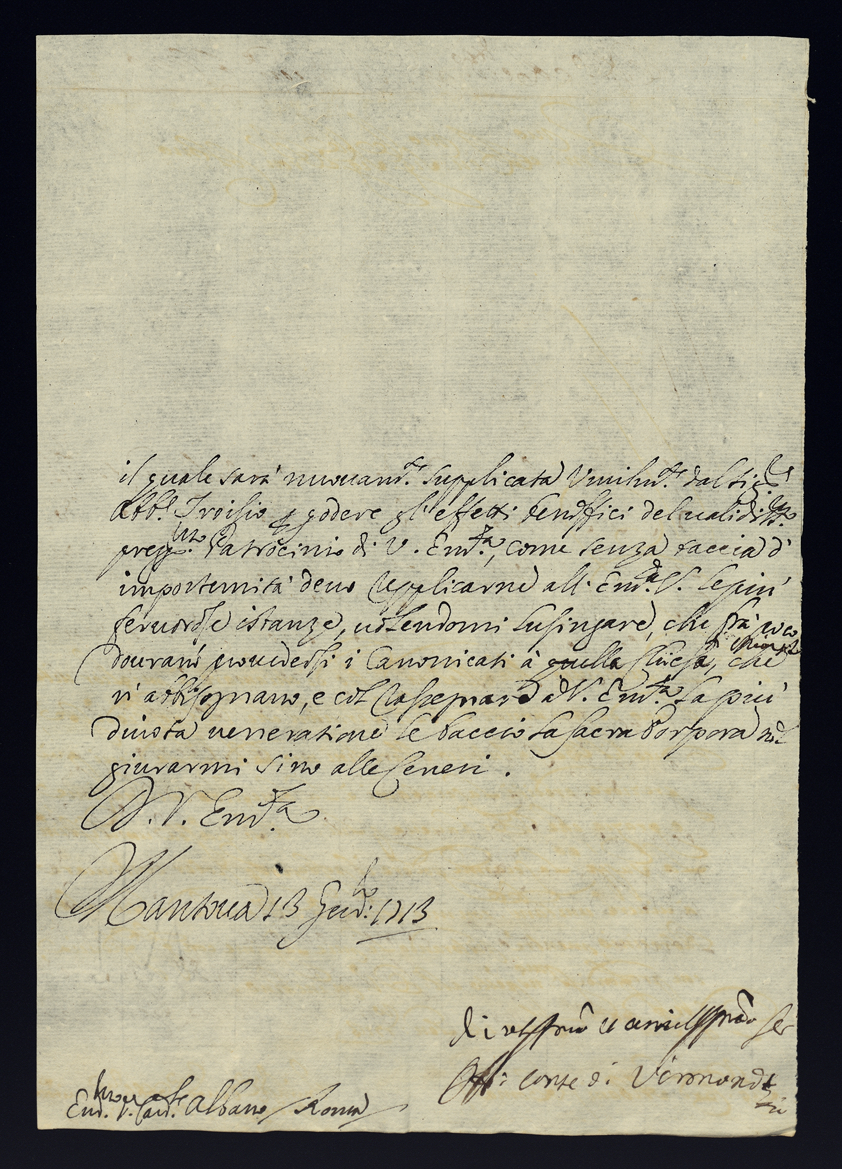 il quale sarà nuouamte. supplicata Vmilmte. dal Sigr.
Abbe. Troisio p godere gl'effetti beneffici del ualidissmo.
pregmo. Patrocinio di V. Emza., come senza taccia d'
importunità deuo supplicarne all' Emza. V. le più
feruorose istanze, uolendomi lusingare, che frà poco
douranno prouedersi i Canonicati à quella Chiesa, che
ui abbisognano, e col rassegnare à V. Emza. la più
diuota ueneratione le baccio la Sacra Porpora nel
giurarmi sino alle Ceneri.
D. V. Emza.
Mantoua 13 Genro. 1713
Conte di
Emmo. Sr. Card. Albano / Roma